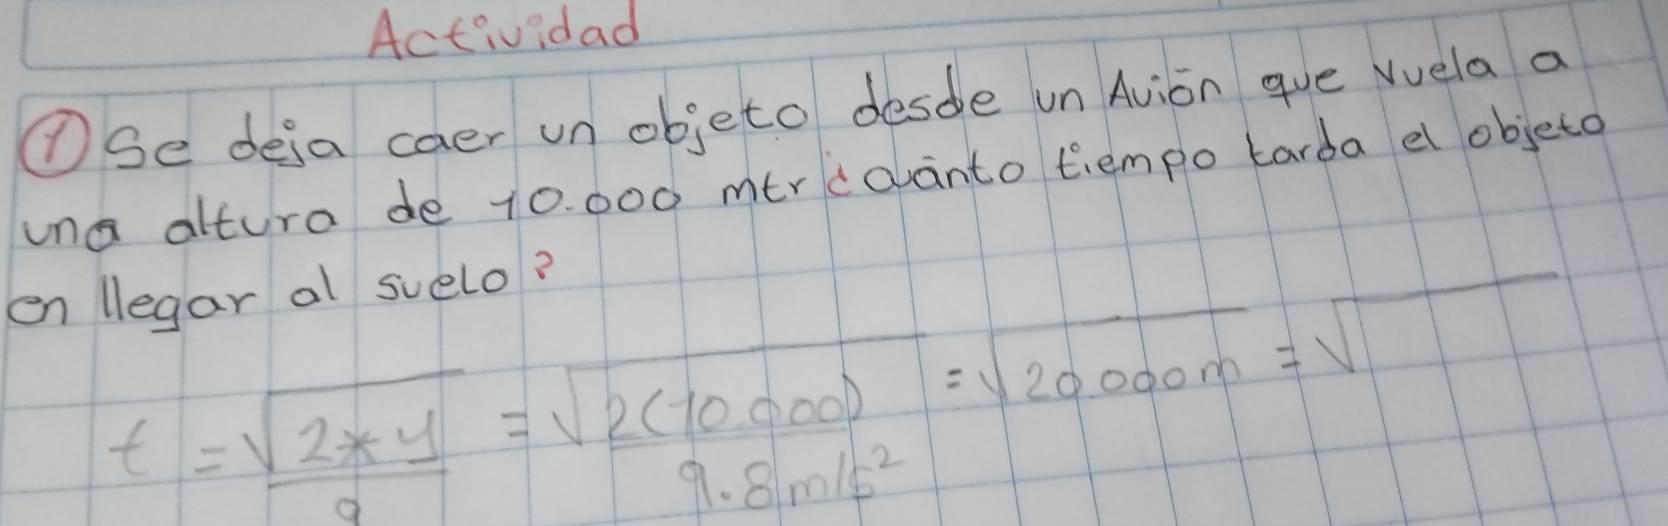 Actividad
① Se deja caer un objeto desde un Avión que vuela a
una altura de 10.000 mtr ¿cuánto tiempo tarda el objeto
en llegar al suelo?
t = √2*y/g = √2(10.000)/9.8m/s² = √20.000m = √